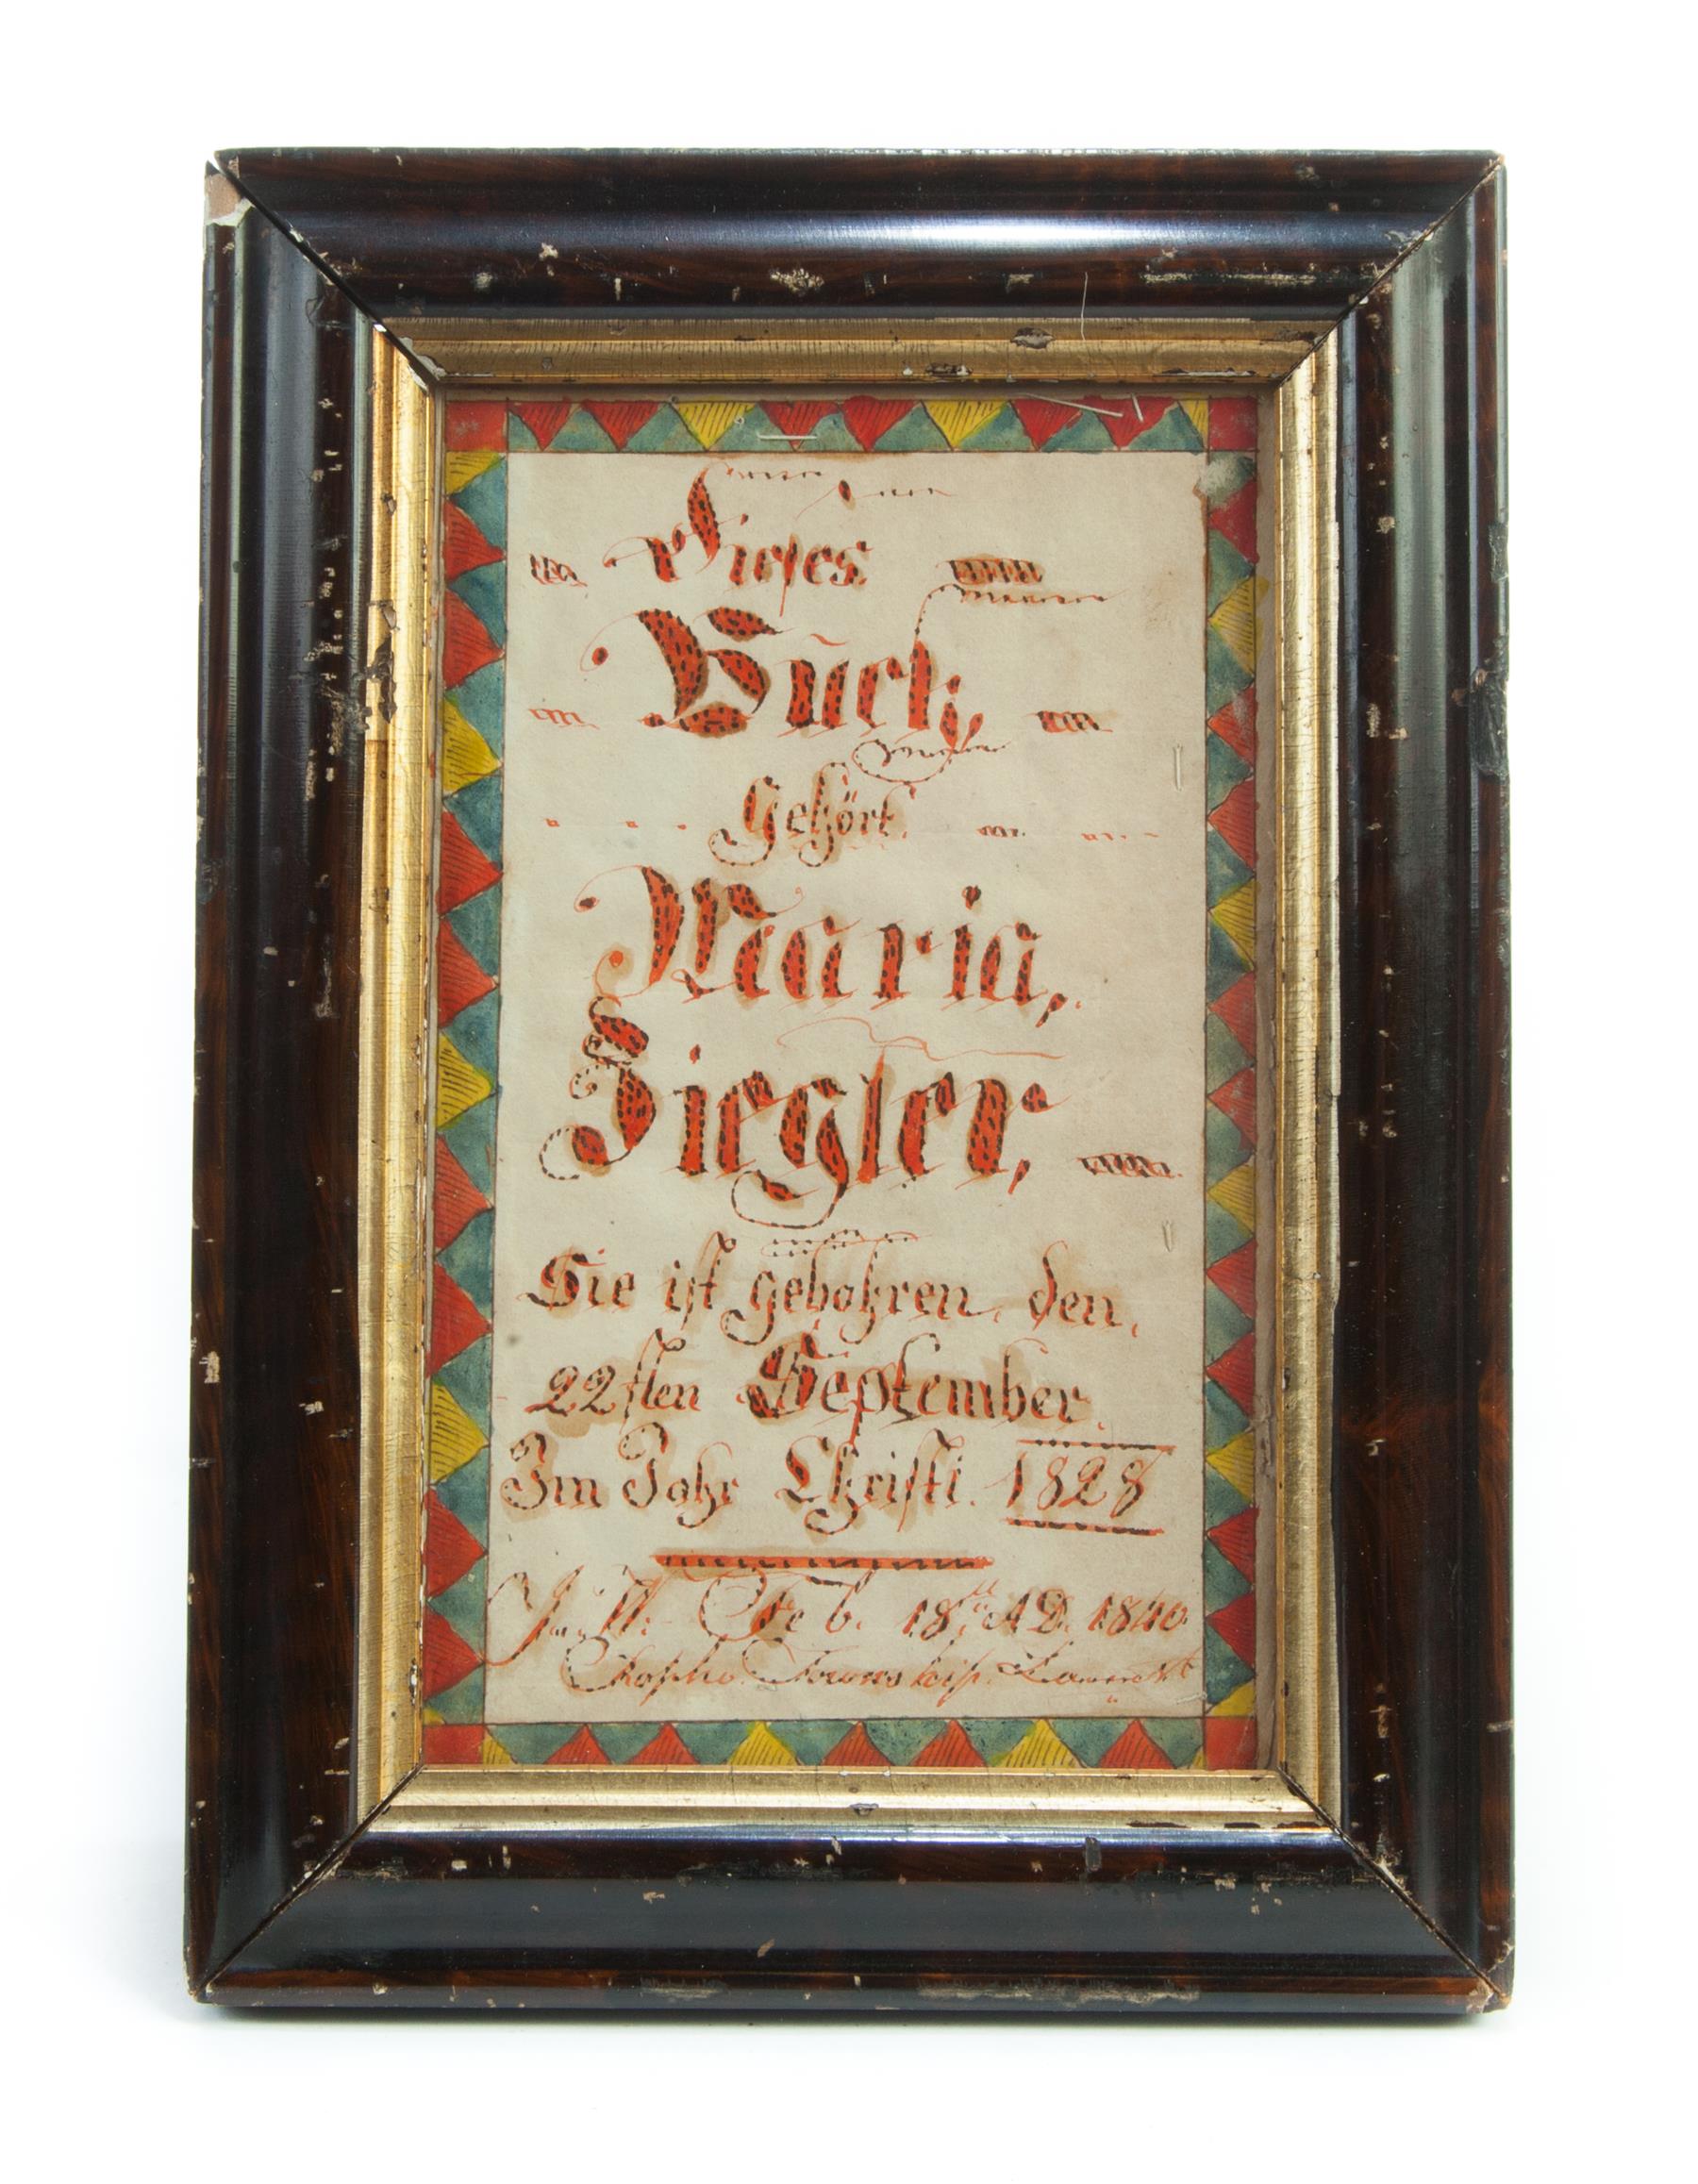 Dieses
Buch,
Gehört
Maria,
Ziegler,
Sie ist gebohren, den,
22sten September.
Im Jahr Christi. 1828
Feb. 18th AD. 1840.
Rapho Township.